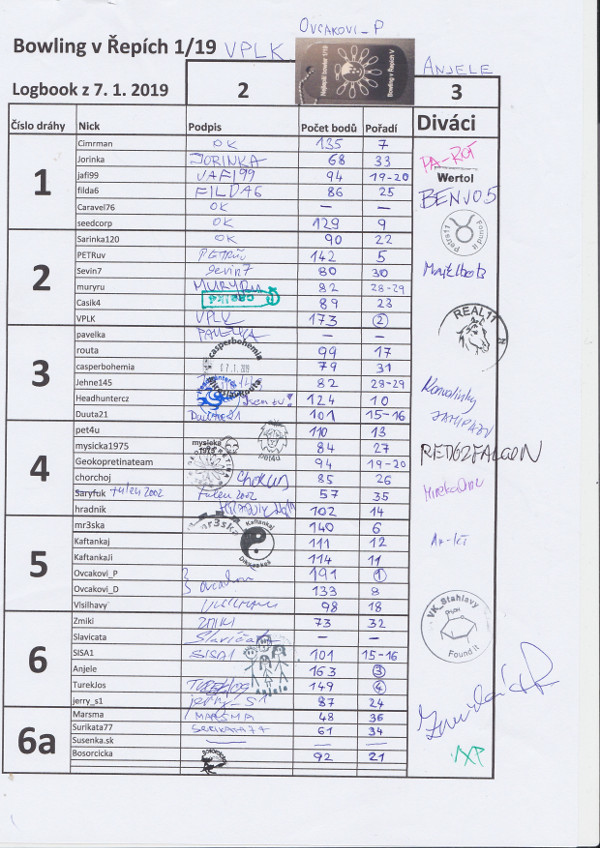 Ovcakovi_P
Bowling v Řepích 1/19 VPLK
ANJELE
Logbook z 7. 1. 2019 2 3
Nejlepší bowler 1/19
Bowling v Řepích V
Číslo dráhy Nick Podpis Počet bodů Pořadí Diváci
1
Cimrman OK 135 7
Jorinka JORINKA 68 33
jafi99 JAFI99 94 19-20
filda6 FILDA6 86 25
Caravel76 OK — —
seedcorp OK 129 9
2
Sarinka120 OK 90 22
PETRuv PETRŮV 142 5
Sevin7 Sevin7 80 30
muryru MURYRU 82 28-29
Casik4 89 23
VPLK VPLK 173 2
3
pavelka PAVELKA — —
routa 99 17
casperbohemia casperbohemia 07.1.2019 79 31
Jehne145 82 28-29
Headhuntercz 124 10
Duuta21 Duuta21 101 15-16
4
pet4u pet4u 110 13
mysicka1975 mysicka 1975 84 27
Geokopretinateam 94 19-20
chorchoj 85 26
Saryfuk tulen2002 Tulen2002 57 35
hradnik 102 14
5
mr3ska mr3ska 140 6
Kaftankaj Kaftankaj 111 12
KaftankaJi 114 11
Ovcakovi_P 191 1
Ovcakovi_D Ovcakovi 133 8
Vlsilhavy 98 18
6
Zmiki ZMIKI 73 32
Slavicata Slavičata — —
SISA1 SISA1 101 15-16
Anjele Anjele 163 3
TurekJos TUREKJOS 149 4
jerry_s1 jerry_s1 87 24
6a
Marsma MARSMA 48 36
Surikata77 SURIKATA77 61 34
Susenka.sk — — —
Bosorcicka Bosorcicka 92 21
PA-ROT
Wertol
BENJO5
Petrs11 Found it
REAL11
Konvalinky
RET072FALCON
VK_Stahlavy
Found it